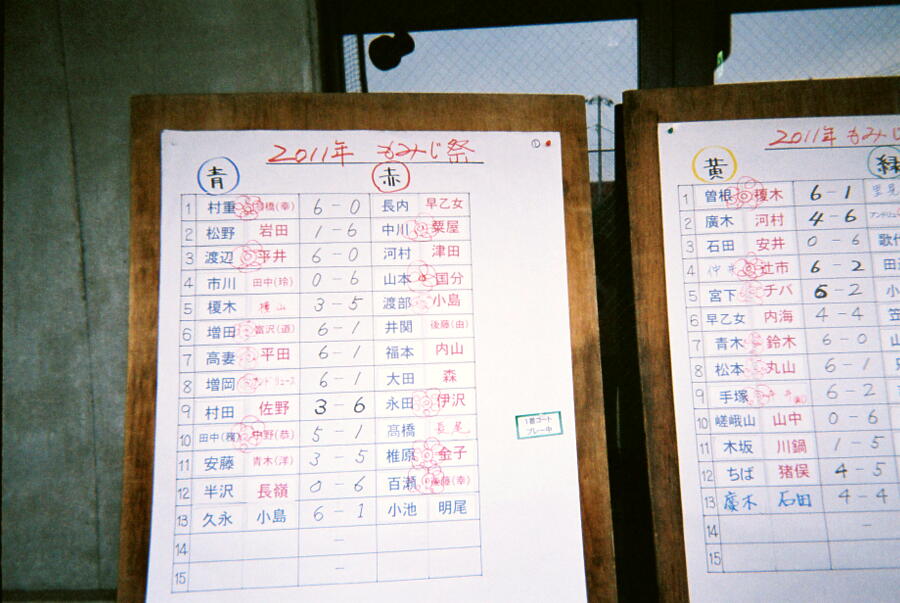 2011年 もみじ祭 ①
青 赤
1 村重 高橋(幸) 6 - 0 長内 早乙女
2 松野 岩田 1 - 6 中川 粟屋
3 渡辺 平井 6 - 0 河村 津田
4 市川 田中(玲) 0 - 6 山本 国分
5 榎木 3 - 5 渡部 小島
6 増田 富沢(道) 6 - 1 井関 後藤(由)
7 高妻 平田 6 - 1 福本 内山
8 増岡 6 - 1 大田 森
9 村田 佐野 3 - 6 永田 伊沢
10 田中 中野(恭) 5 - 1 高橋 長尾
11 安藤 青木(洋) 3 - 5 椎原 金子
12 半沢 長嶺 0 - 6 百瀬
13 久永 小島 6 - 1 小池 明尾
14 -
15 -
1番コート
プレー中
2011年 もみじ
黄 緑
1 曽根 榎木 6 - 1 里見
2 廣木 河村 4 - 6
3 石田 安井 0 - 6 歌代
4 辻市 6 - 2
5 宮下 チバ 6 - 2 小
6 早乙女 内海 4 - 4
7 青木 鈴木 6 - 0 山
8 松本 丸山 6 - 1
9 手塚 6 - 2
10 嵯峨山 山中 0 - 6
11 木坂 川鍋 1 - 5
12 ちば 猪俣 4 - 5
13 廣木 石田 4 - 4
14 -
15